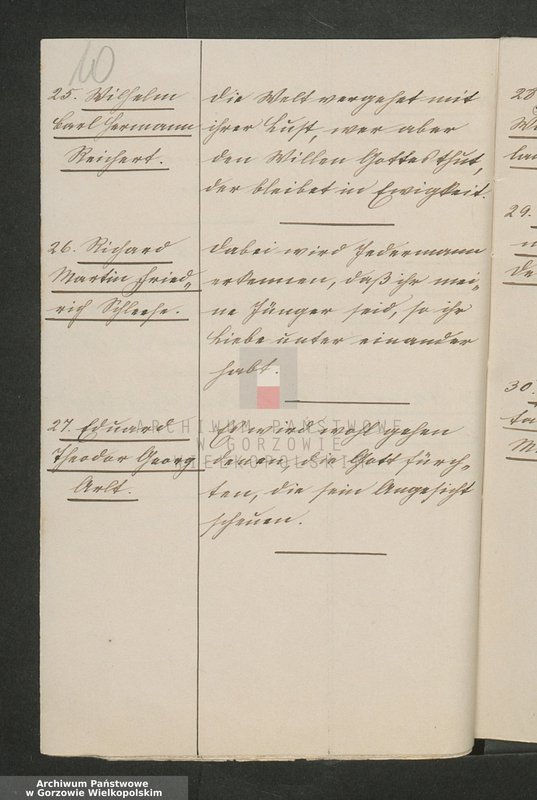 10
25. Wilhelm
Carl Hermann
Reichert.
Die Welt vergehet mit
ihrer Lust, wer aber
den Willen Gottes thut,
der bleibet in Ewigkeit.
26. Richard
Martin Fried-
rich Schleese.
Dabei wird Jedermann
erkennen, daß ihr mei-
ne Jünger seid, so ihr
Liebe unter einander
habt.
27. Eduard
Theodor Georg
Arlt.
Es wird wohl gehen
denen die Gott fürch-
ten, die sein Angesicht
scheuen.
28
29.
30.
ARCHIWUM PAŃSTWOWE
W GORZOWIE
WIELKOPOLSKIM
Archiwum Państwowe
w Gorzowie Wielkopolskim